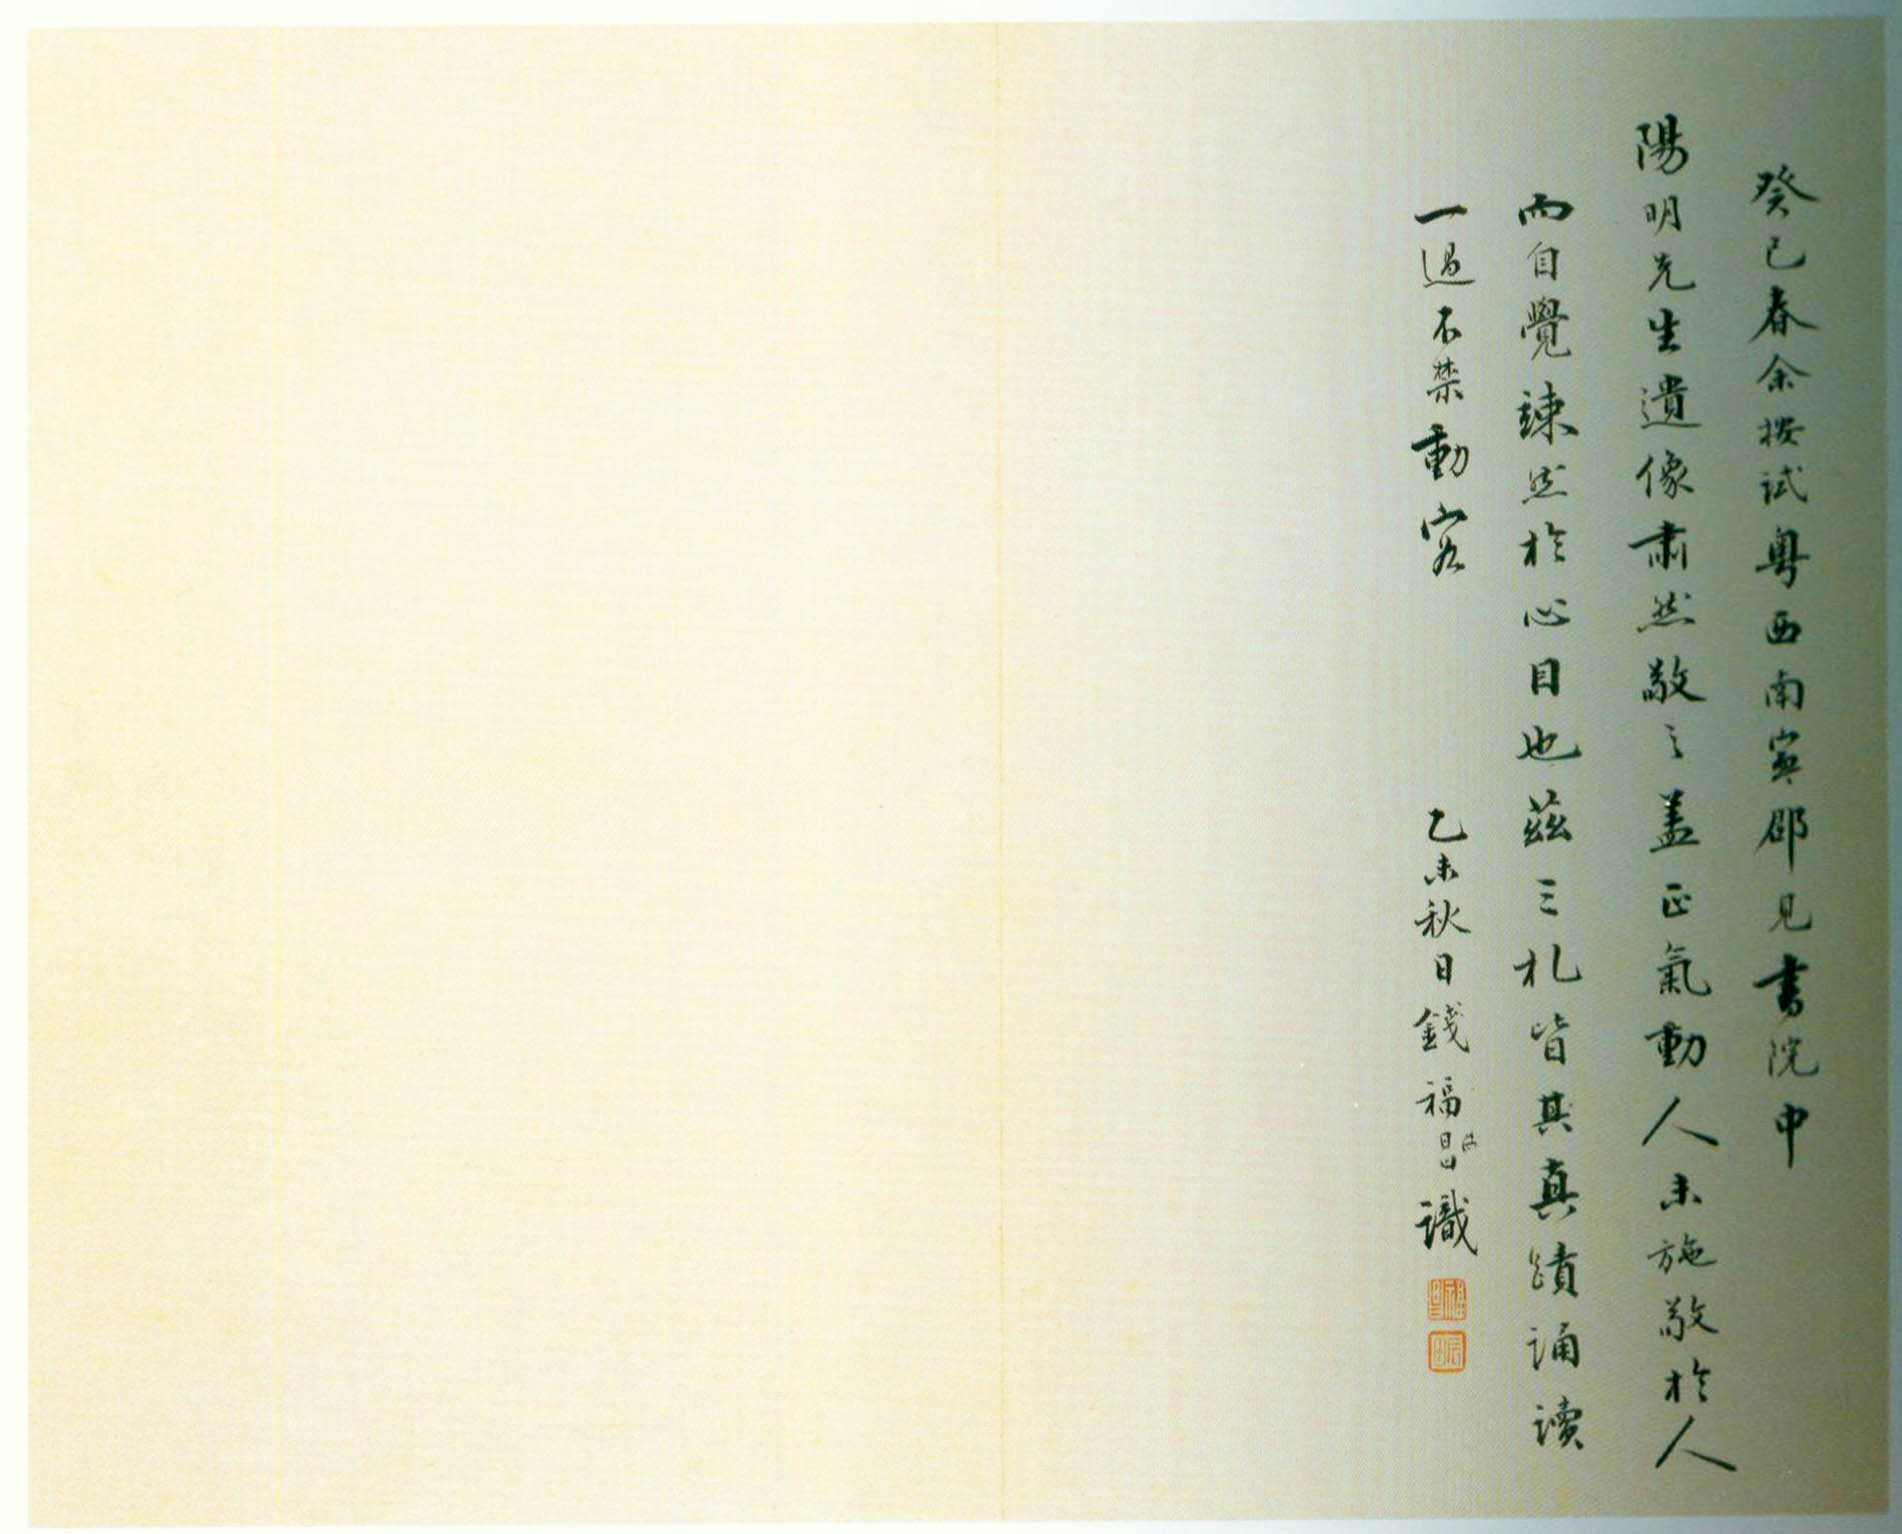 癸巳春余按試粵西南寧郡見書院中
陽明先生遺像肅然敬之蓋正氣動人未施敬於人
而自覺竦然於心目也茲三札皆其真蹟誦讀
一過不禁動容
乙未秋日錢福昌識